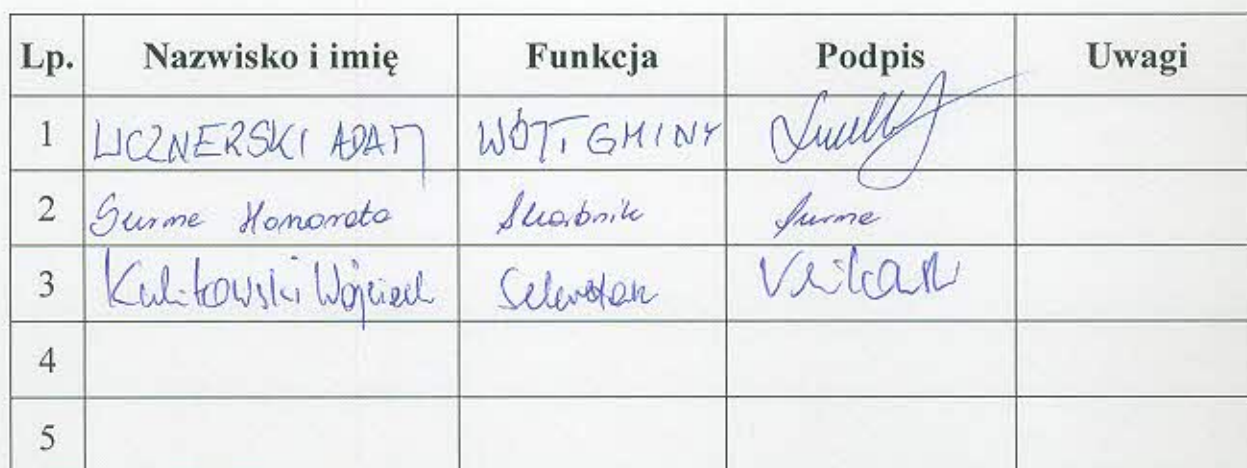 Lp. Nazwisko i imię Funkcja Podpis Uwagi
1 LICZNERSKI ADAM WÓJT GMINY
2 Surme Honorata Skarbnik Surme
3 Kulikowski Wojciech Sekretarz
4
5